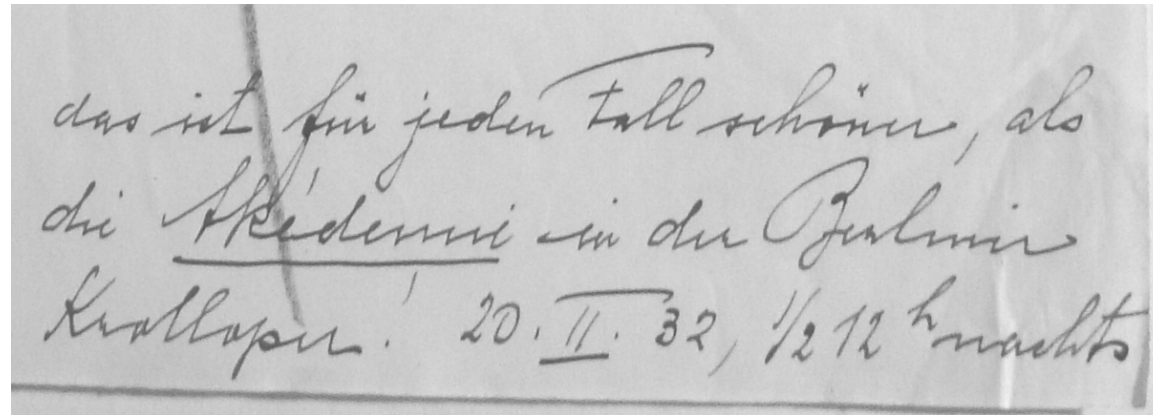 das ist für jeden Fall schöner, als
die Akademie in der Berliner
Krolloper! 20. II. 32, 1/2 12 h nachts